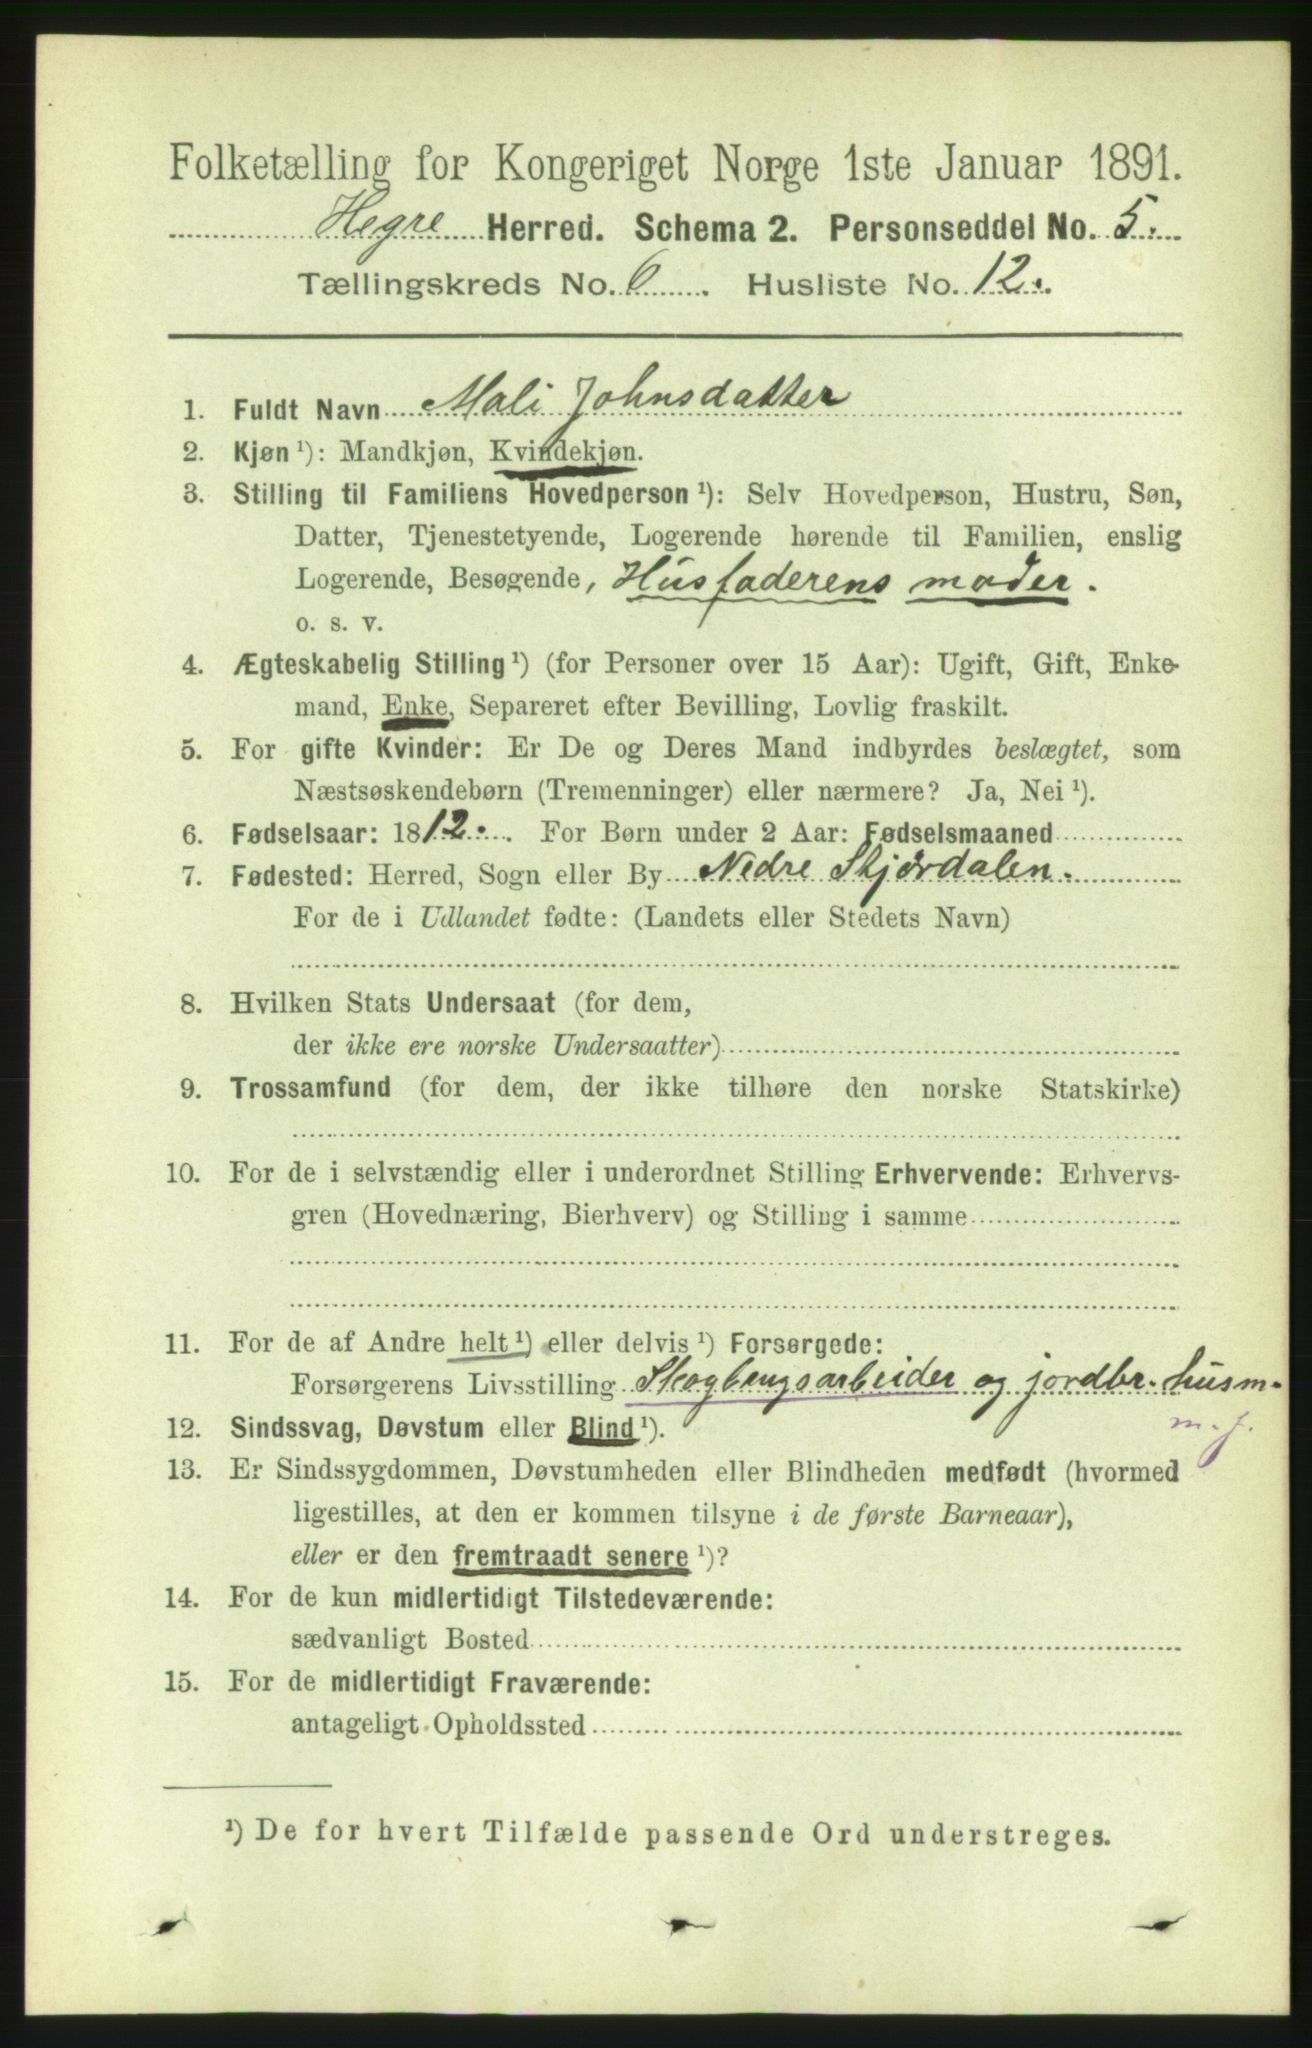 Folketælling for Kongeriget Norge 1ste Januar 1891.
Hegre Herred. Schema 2. Personseddel No. 5.
Tællingskreds No. 6. Husliste No. 12.
1. Fuldt Navn Mali Johnsdatter
2. Kjøn ¹): Mandkjøn, Kvindekjøn.
3. Stilling til Familiens Hovedperson ¹): Selv Hovedperson, Hustru, Søn,
Datter, Tjenestetyende, Logerende hørende til Familien, enslig
Logerende, Besøgende, Husfaderens moder.
o. s. v.
4. Ægteskabelig Stilling ¹) (for Personer over 15 Aar): Ugift, Gift, Enke-
mand, Enke, Separeret efter Bevilling, Lovlig fraskilt.
5. For gifte Kvinder: Er De og Deres Mand indbyrdes beslægtet, som
Næstsøskendebørn (Tremenninger) eller nærmere? Ja, Nei ¹).
6. Fødselsaar: 1812. For Børn under 2 Aar: Fødselsmaaned
7. Fødested: Herred, Sogn eller By Nedre Stjørdalen.
For de i Udlandet fødte: (Landets eller Stedets Navn)
8. Hvilken Stats Undersaat (for dem,
der ikke ere norske Undersaatter)
9. Trossamfund (for dem, der ikke tilhøre den norske Statskirke)
10. For de i selvstændig eller i underordnet Stilling Erhvervende: Erhvervs-
gren (Hovednæring, Bierhverv) og Stilling i samme
11. For de af Andre helt ¹) eller delvis ¹) Forsørgede:
Forsørgerens Livsstilling Skogbrugsarbeider og jordbr. husm.
m. j.
12. Sindssvag, Døvstum eller Blind ¹).
13. Er Sindssygdommen, Døvstumheden eller Blindheden medfødt (hvormed
ligestilles, at den er kommen tilsyne i de første Barneaar),
eller er den fremtraadt senere ¹)?
14. For de kun midlertidigt Tilstedeværende:
sædvanligt Bosted
15. For de midlertidigt Fraværende:
antageligt Opholdssted
¹) De for hvert Tilfælde passende Ord understreges.